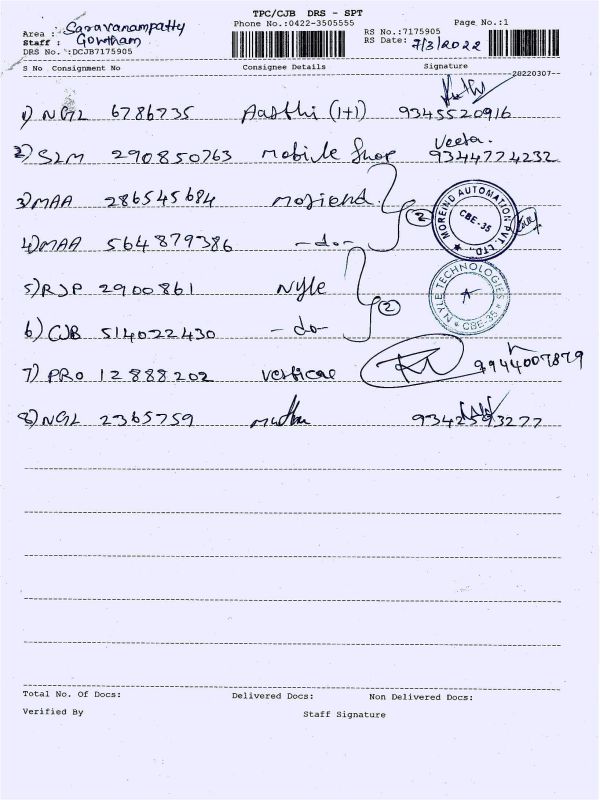 TPC/CJB DRS - SPT
Area : Saravanampatty
Phone No.:0422-3505555
Page No.:1
Staff : Gowtham
RS No.:7175905
DRS No.:DCJB7175905
RS Date: 7/3/2022
S No Consignment No Consignee Details Signature
20220307--
1) NGL 6786735 Aasthi (1+1) 9345520916
2) SLM 290850763 Mobile Shop Veeta. 9344774232
3) MAA 286545684 Moriend
4) MAA 564879386 -do- 2
MOREIND AUTOMATION PVT. LTD.,
CBE-35
5) RJP 2900861 Nyle
6) CJB 514022430 -do- 2
NYLE TECHNOLOGIES
CBE-35
7) PRO 12888202 Vertical 9944007879
8) NGL 2365759 9342593277
Total No. Of Docs: Delivered Docs: Non Delivered Docs:
Verified By Staff Signature